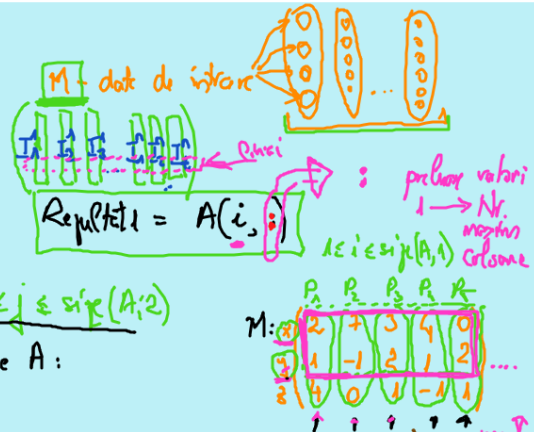 M - date de intrare
...
I₁ I₂ I₂ I₁ I₂ I₂
...
Rezultat1 = A(i, :)
: preluare valori
1 → Nr.
maxim
coloane
1 ≤ i ≤ size(A,1)
≤ j ≤ size(A,2)
e A :
P₁ P₂ P₃ P₄ P₅
M: x 2 7 3 4 0
y 1 -1 2 1 2 ....
z 4 0 1 -1 1